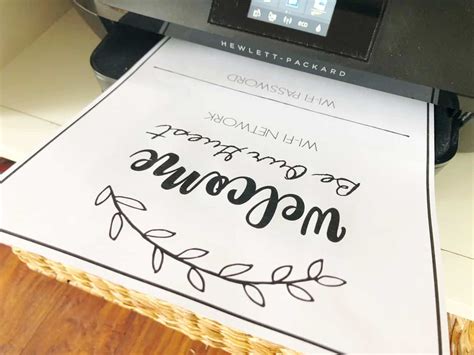 HEWLETT-PACKARD
welcome
Be Our Guest
WI-FI NETWORK
WI-FI PASSWORD